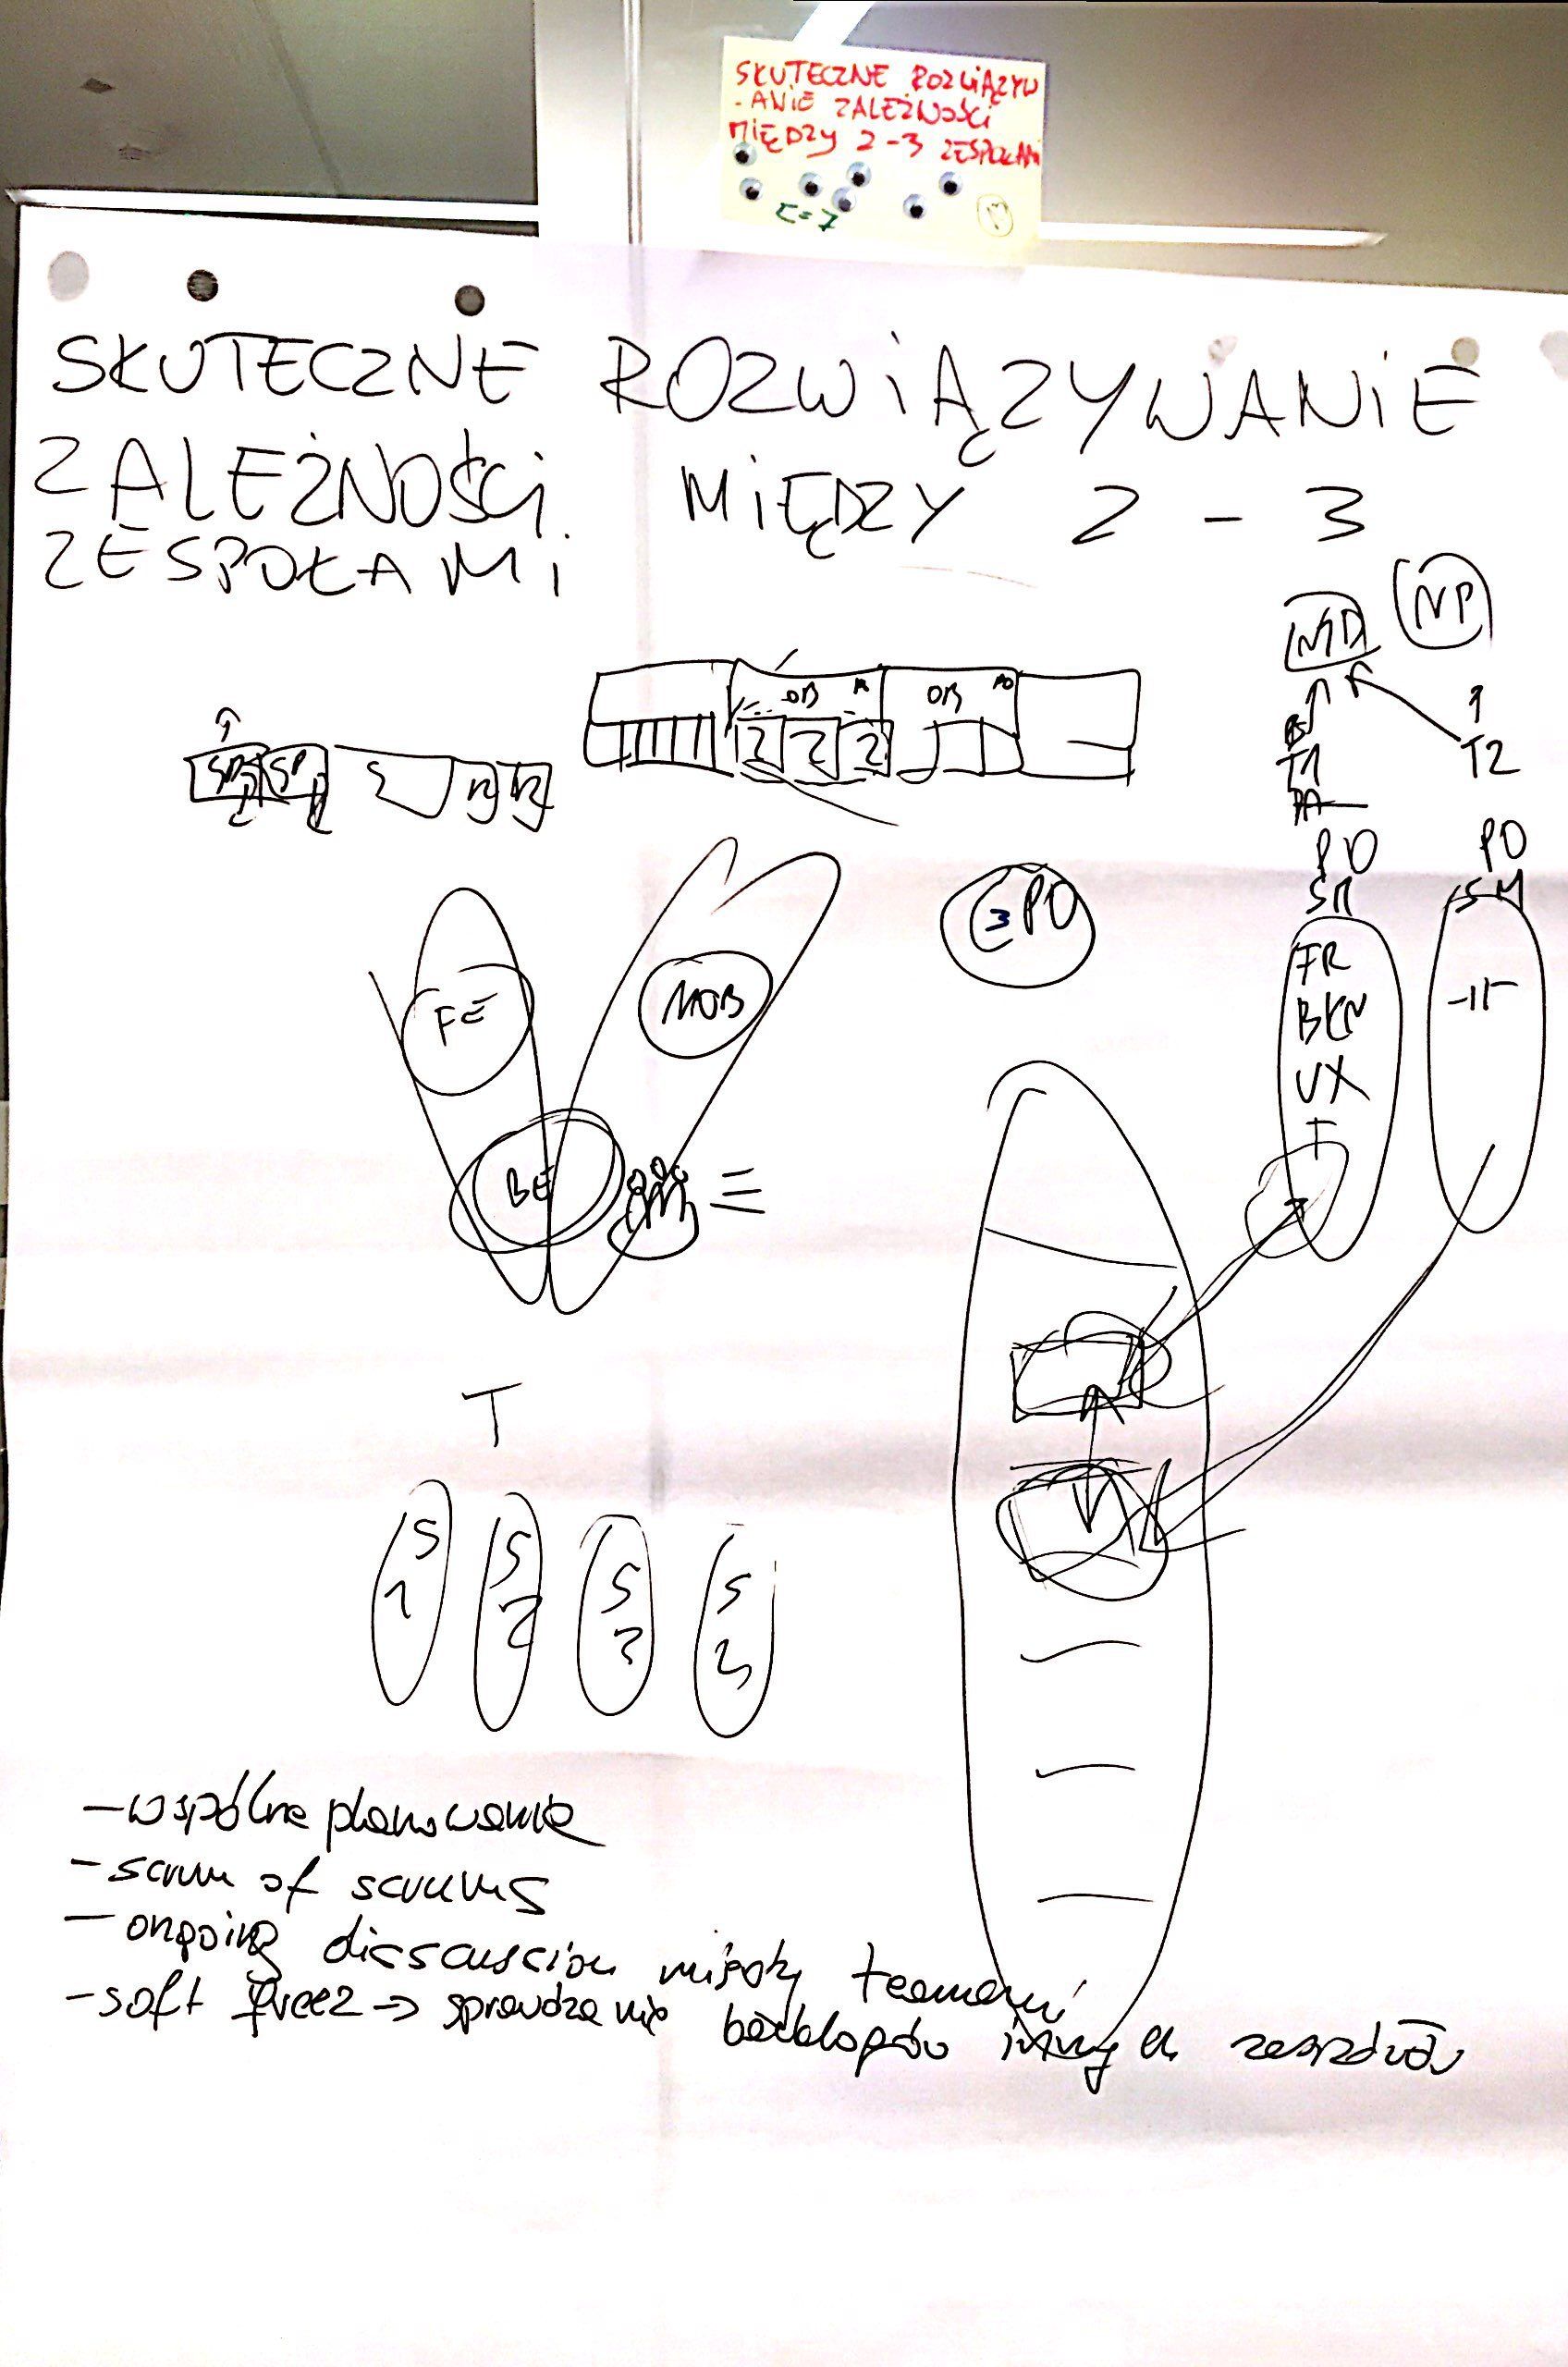 SKUTECZNE ROZWIĄZYW
-ANIE ZALEŻNOŚCI
MIĘDZY 2-3 ZESPOŁAMI
Σ=7
SKUTECZNE ROZWIĄZYWANIE
ZALEŻNOŚCI MIĘDZY 2 - 3
ZESPOŁAMI
MD NP
OB OB
T1 T2
PO PO
SM SM
3 PO
FE MOB
FR
BKN
UX
T
BE
T
S S S S
1 2 3
- wspólne planowanie
- scrum of scrums
- ongoing discsuscion między teamami
- soft freez → sprawdzanie backlogów innych zespołów